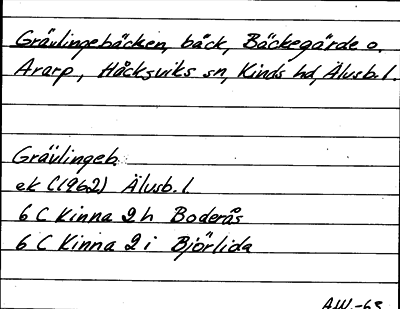 Grävlingebäcken, bäck, Bäckegärde o.
Ararp, Håcksviks sn, Kinds hd, Älvsb. l.
Grävlingeb.
ek (1962) Älvsb. l
6 C Kinna 2 h Boderås
6 C Kinna 2 i Björlida